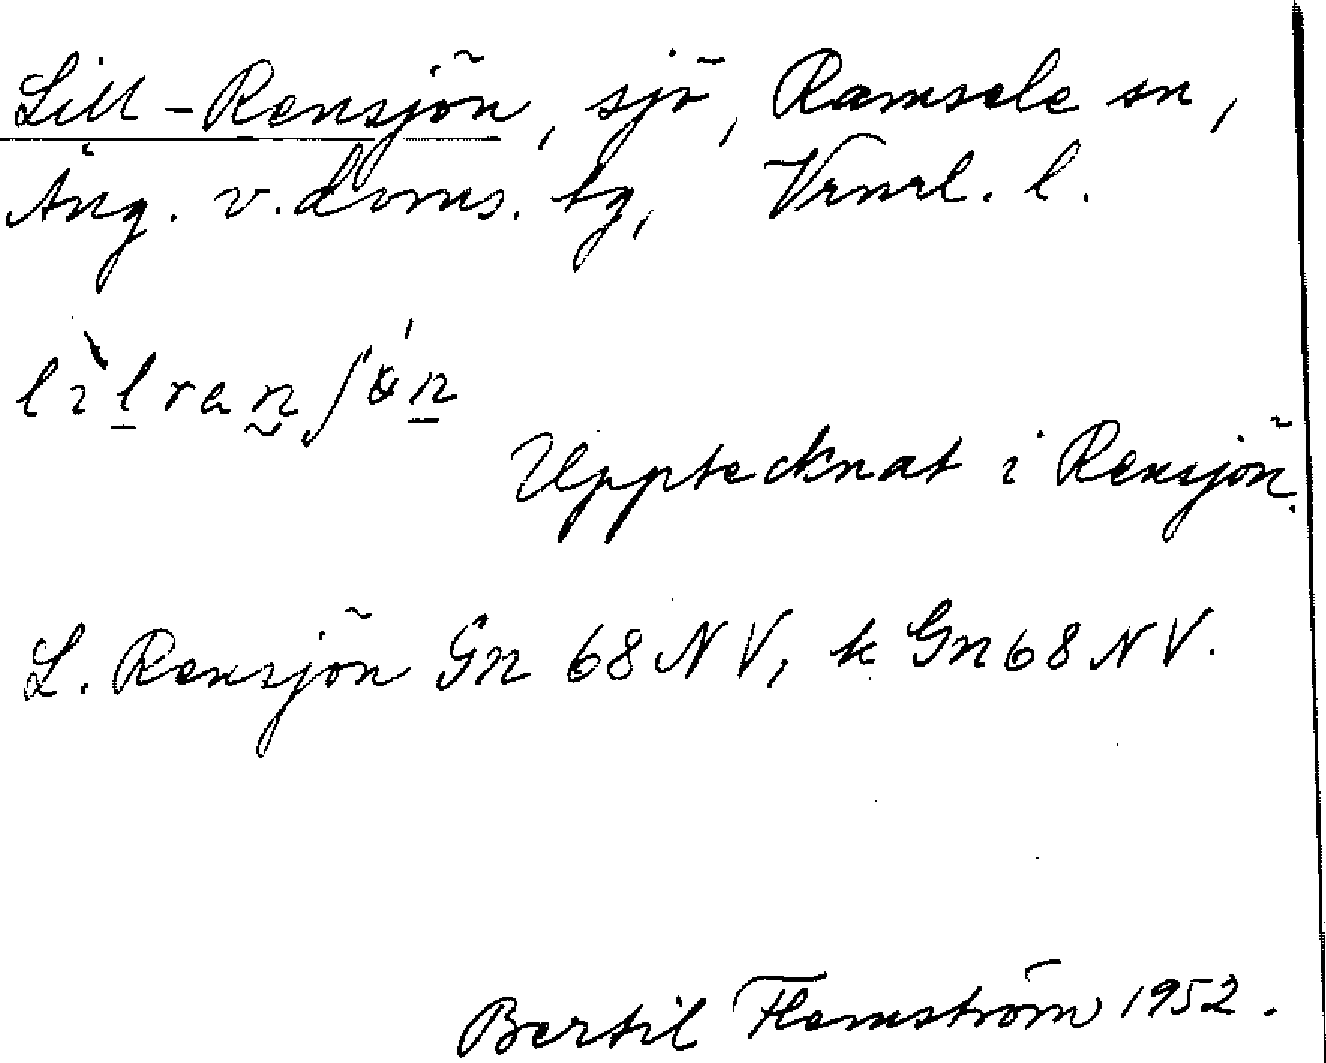 Lill-Rensjön, sjö, Ramsele sn,
Ång. v. doms. tg, Vrnrl. l.
Upptecknat i Rensjön.
L. Rensjön Gn 68 NV, k Gn 68 NV.
Bertil Flemström 1952.